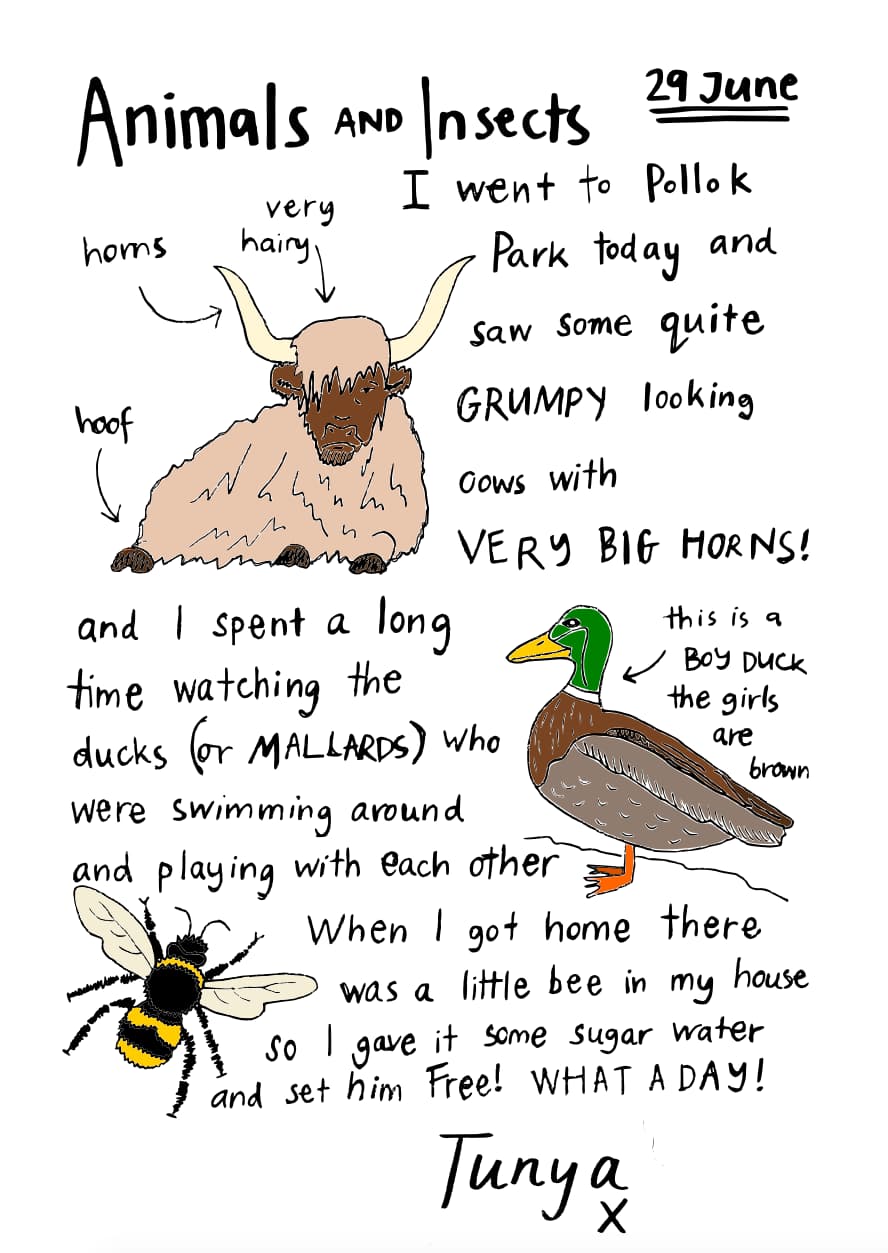 Animals AND Insects
29 June
I went to Pollok
Park today and
saw some quite
GRUMPY looking
cows with
VERY BIG HORNS!
very
hairy
horns
hoof
and I spent a long
time watching the
ducks (or MALLARDS) who
were swimming around
and playing with each other
this is a
BOY DUCK
the girls
are
brown
When I got home there
was a little bee in my house
so I gave it some sugar water
and set him Free! WHAT A DAY!
Tunya
X